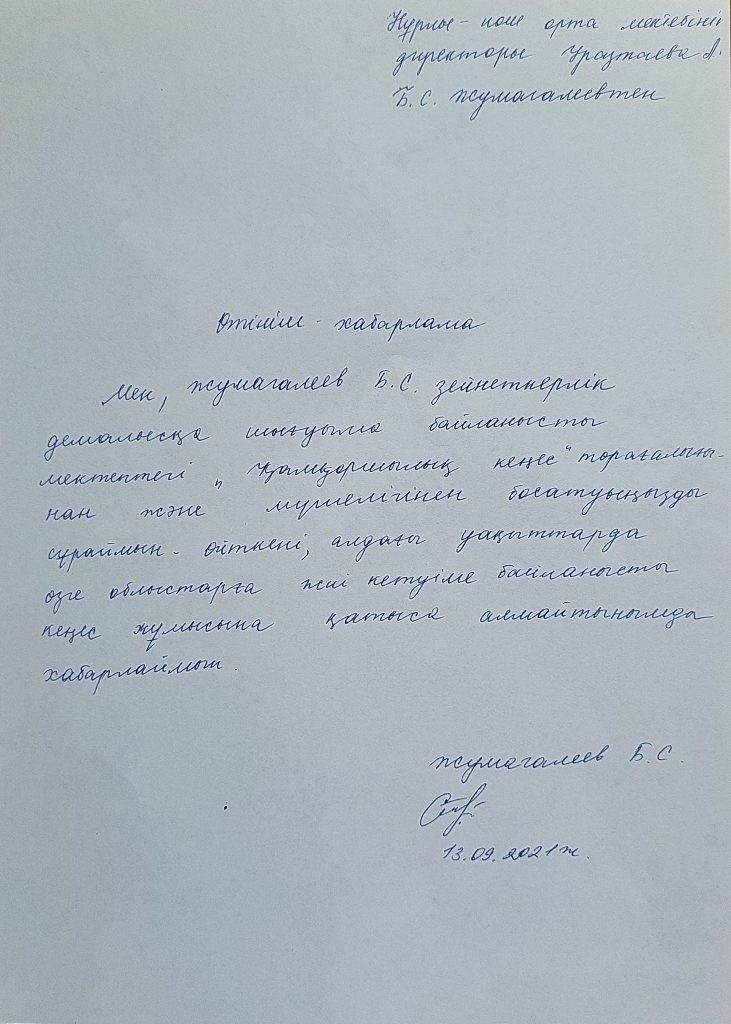 Нұрлы-көш орта мектебінің
директоры Уразтаева А.
Б.С. Жумагалеевтен
Өтініш-хабарлама
Мен, Жумагалеев Б.С. зейнеткерлік
демалысқа шығуыма байланысты
мектептегі „Қамқоршылық кеңес" төрағалығы-
нан және мүшелігінен босатуыңызды
сұраймын. Өйткені, алдағы уақыттарда
өзге облыстарға жиі кетуіме байланысты
кеңес жұмысына қатыса алмайтынымды
хабарлаймын.
Жумагалеев Б.С.
13.09.2021 ж.